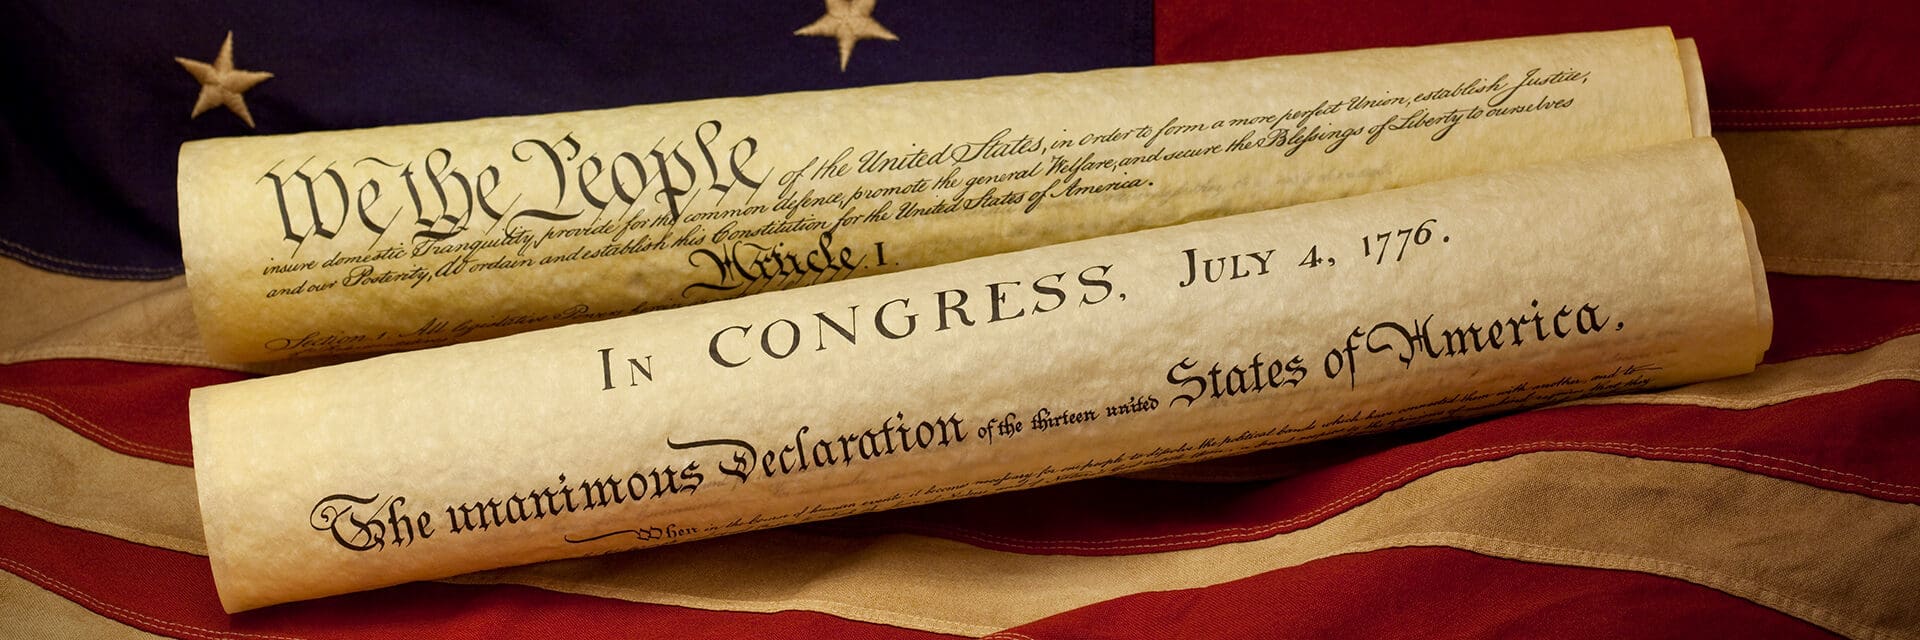 We the People of the United States, in order to form a more perfect Union, establish Justice,
insure domestic Tranquility, provide for the common defence, promote the general Welfare, and secure the Blessings of Liberty to ourselves
and our Posterity, do ordain and establish this Constitution for the United States of America.
Article. I.
Section 1 All legislative Powers herein
In CONGRESS, July 4, 1776.
The unanimous Declaration of the thirteen united States of America,
When in the Course of human events, it becomes necessary for one people to dissolve the political bands which have connected them with another, and to